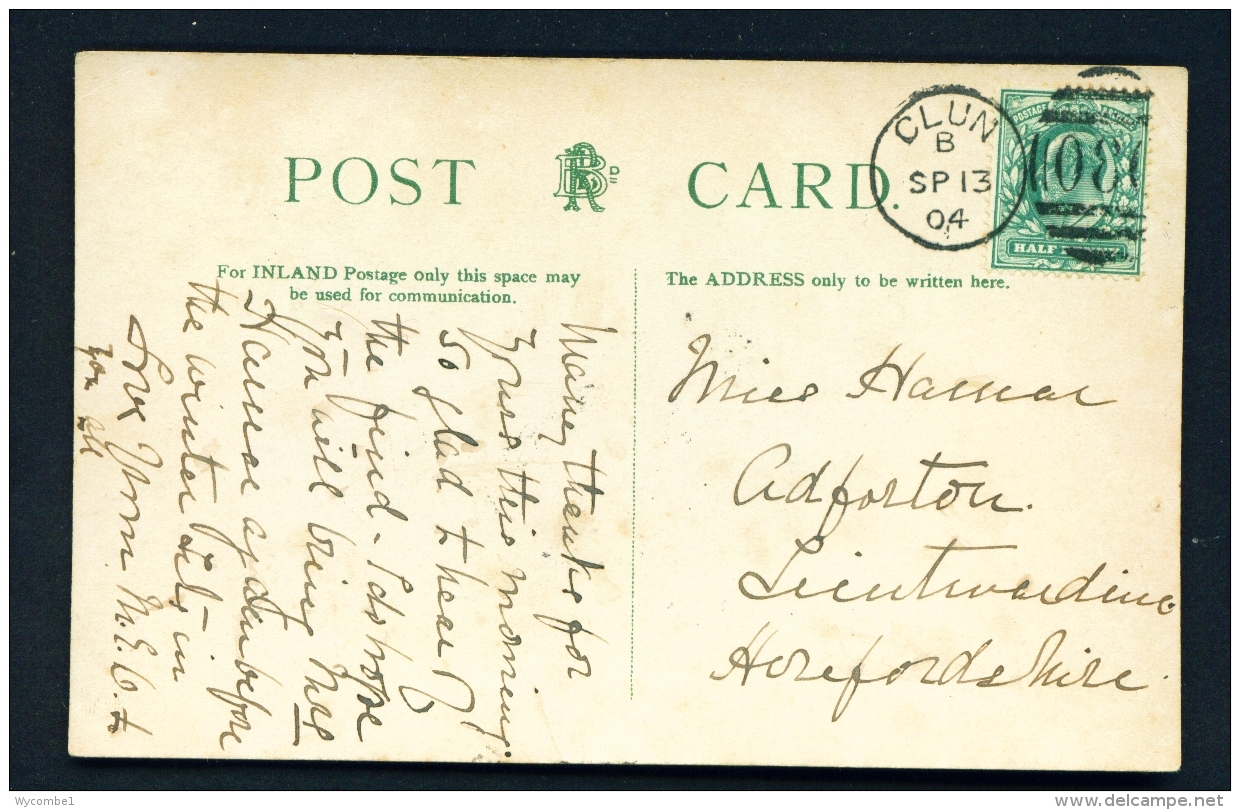 POST CARD.
CLUN
B
SP 13
04
POSTAGE
HALF
For INLAND Postage only this space may
be used for communication.
The ADDRESS only to be written here.
Many thanks for
yours this morning.
So glad to hear of
the find - I do hope
you will bring Mrs
Hamar again before
the winter sets in
Love from M.E.C. to
you all
Miss Hamar
Adforton.
Leintwardine
Herefordshire.
Wycombe1
POSTCARD HQ